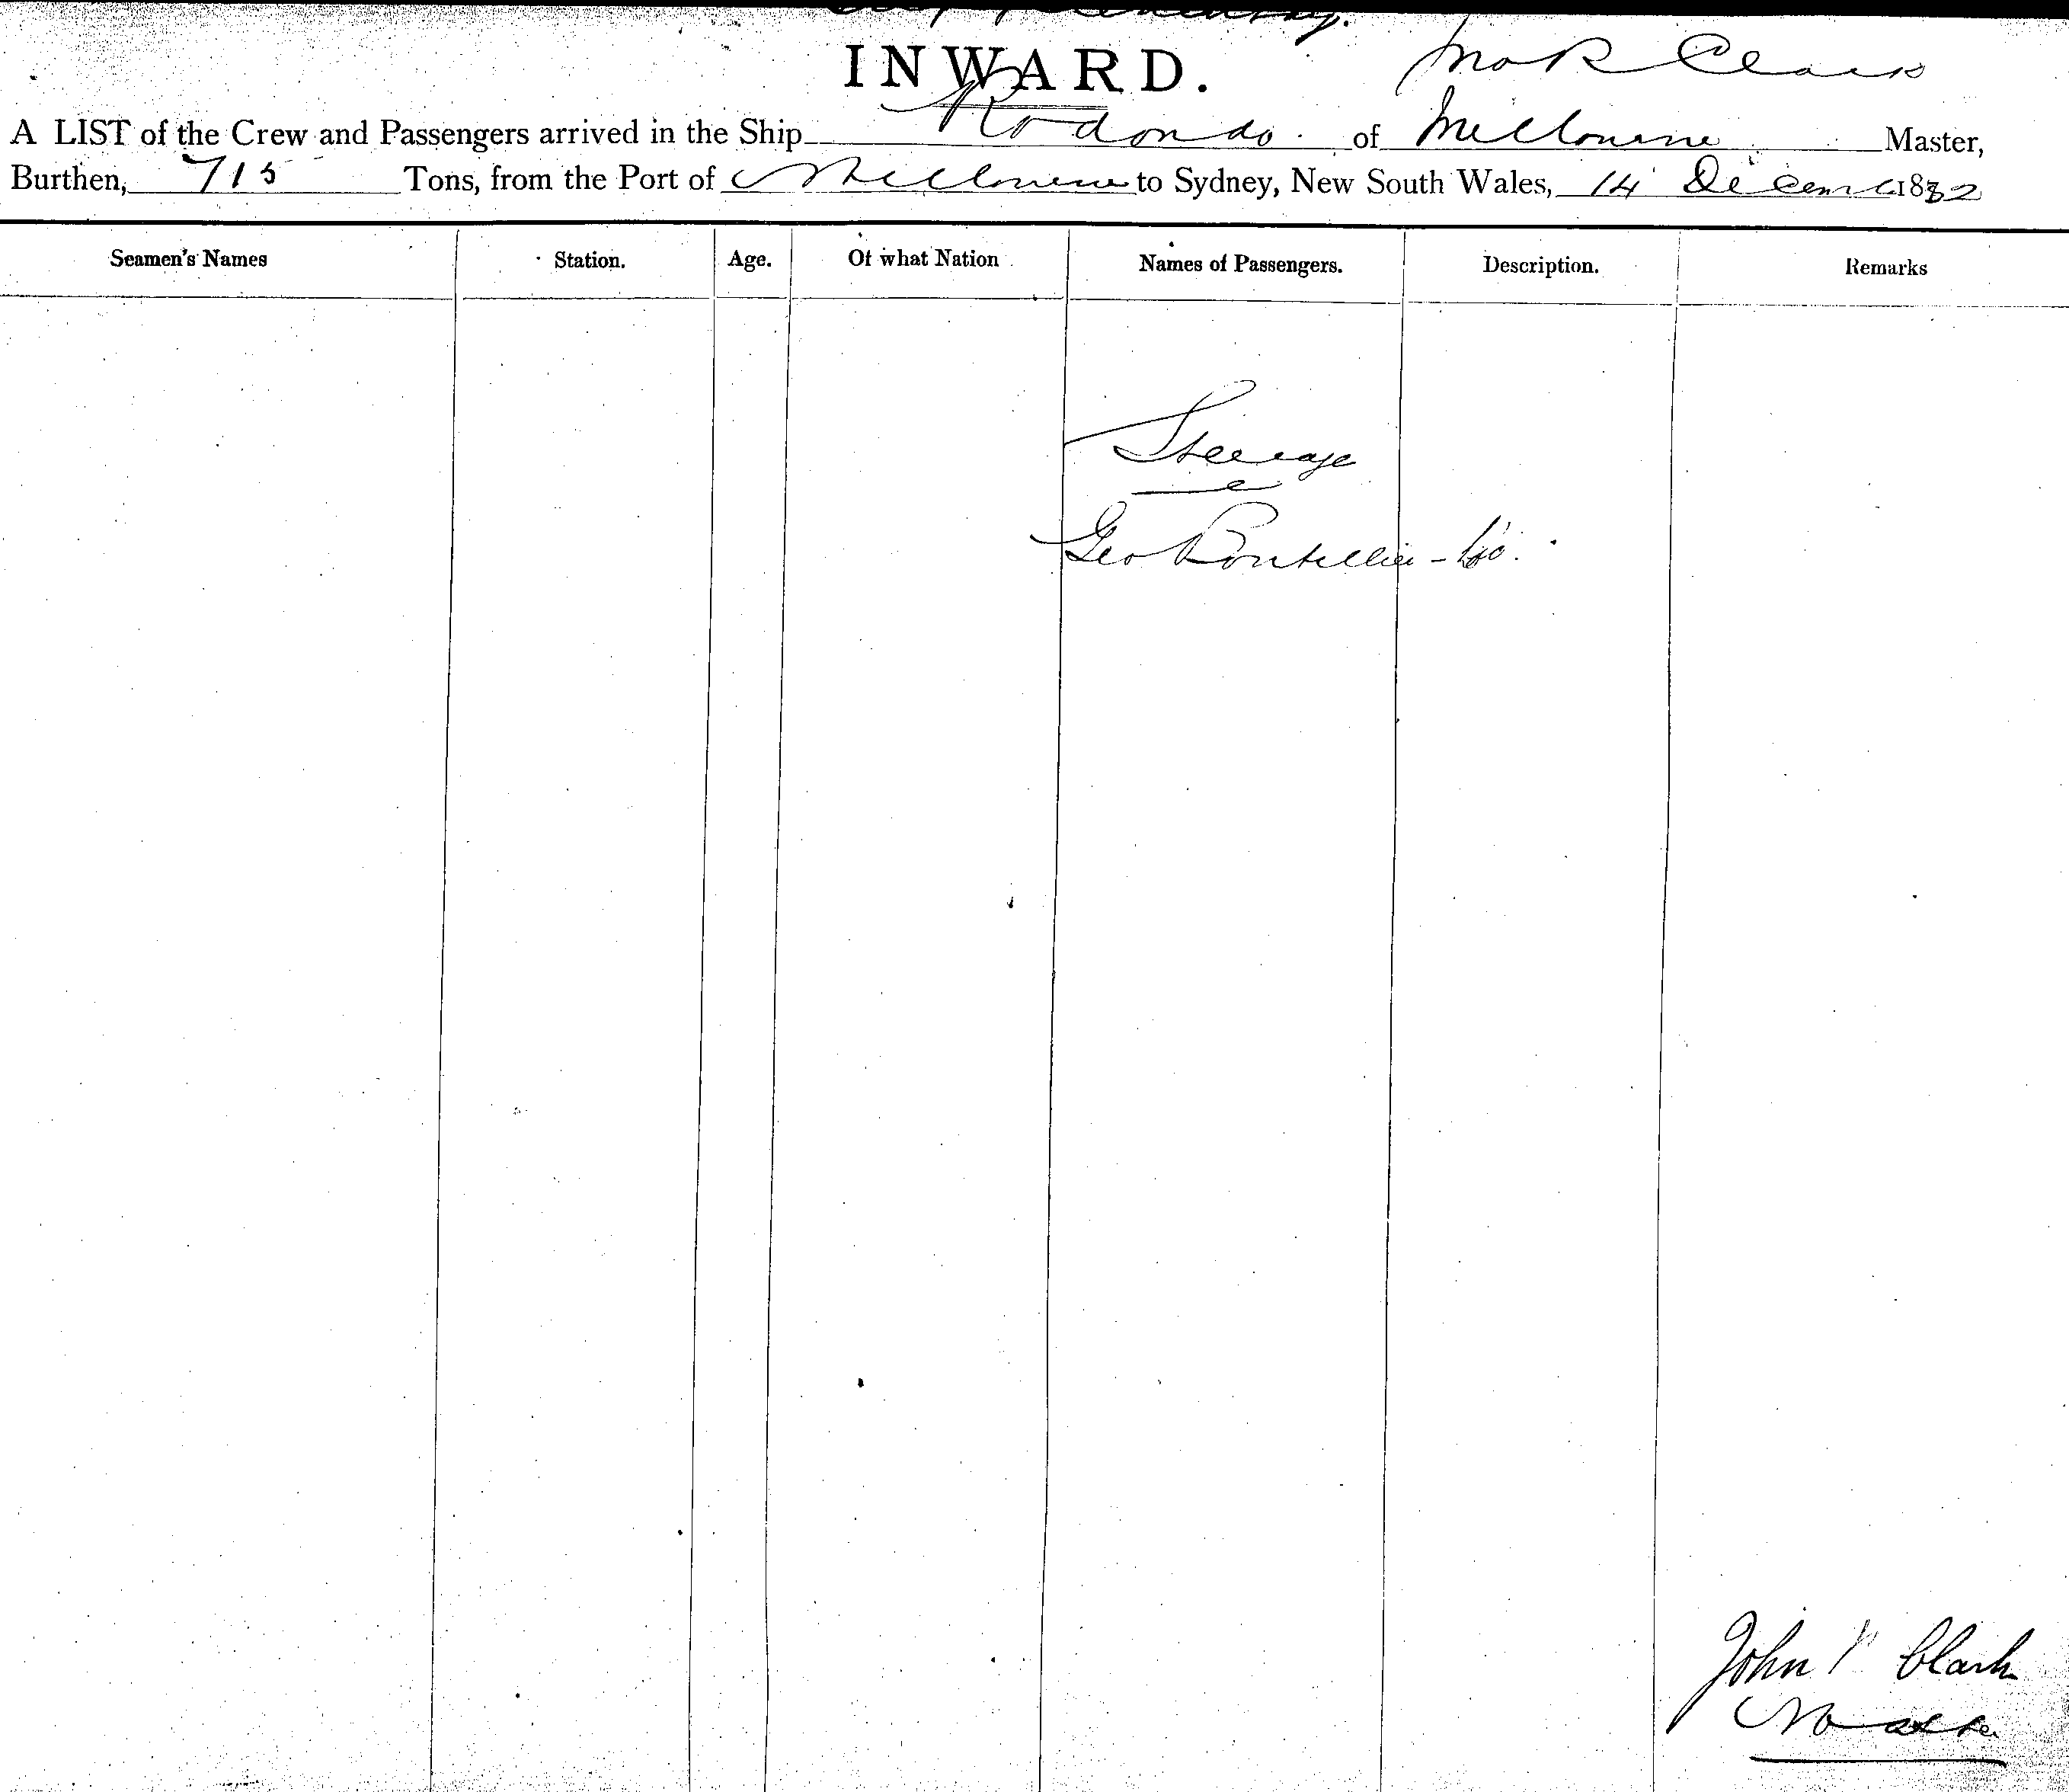 INWARD.
Jno R Clark
A LIST of the Crew and Passengers arrived in the Ship Rodondo. of Melbourne Master,
Burthen, 715 Tons, from the Port of Melbourne to Sydney, New South Wales, 14 Decem 1882
Seamen's Names Station. Age. Of what Nation Names of Passengers. Description. Remarks
Steerage
Geo
John R Clark
Master